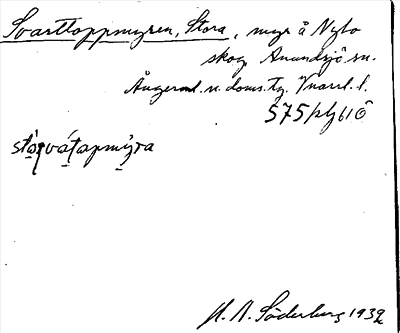 Svarttoppmyren, Stora, myr å Nylo
skog Anundsjö sn.
Ångerml. n. doms. tg. Vnorrl. l.
575
stå̀rváʈapmy̆ra
Söderberg 1932